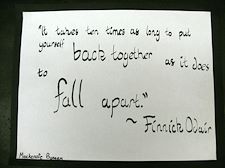 "It takes ten times as long to put
yourself back together as it does
to fall apart."
~ Finnick Odair
Mackenzie